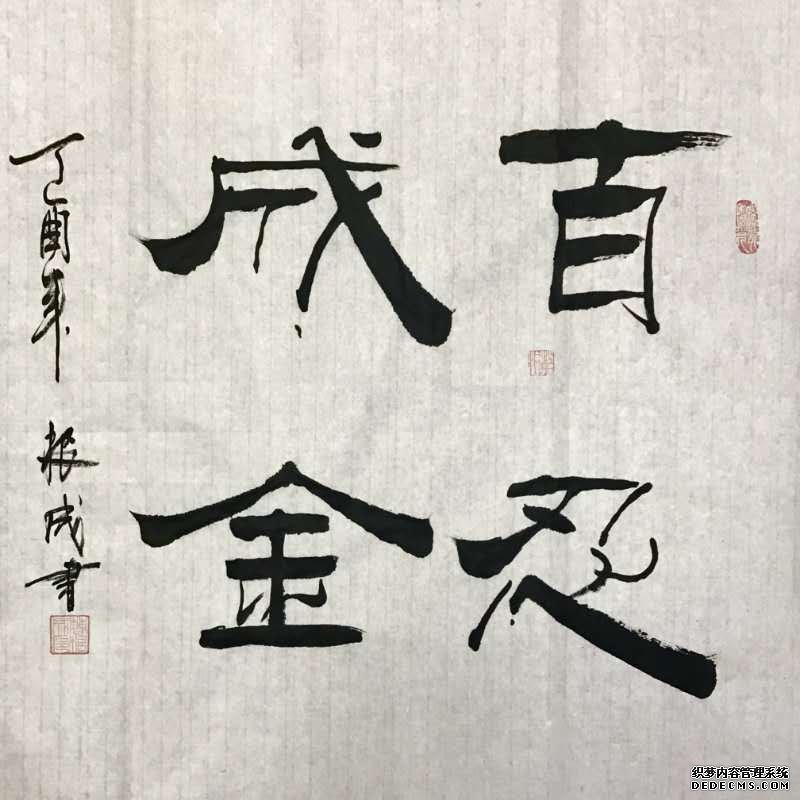 百忍
成金
丁酉年 根成书
织梦内容管理系统
DEDECMS.COM